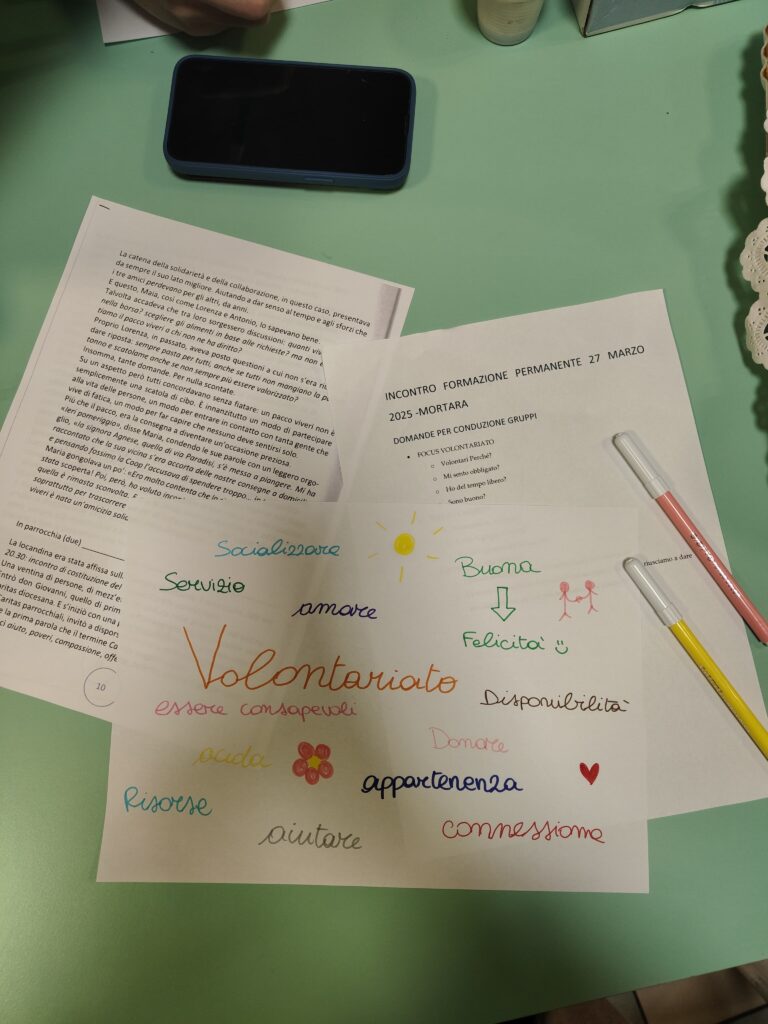 La catena della solidarietà e della collaborazione, in questo caso, presentava
da sempre il suo lato migliore. Aiutando a dar senso al tempo e agli sforzi che
i tre amici perdevano per gli altri, da anni.
E questo, Maia, così come Lorenza e Antonio, lo sapevano bene.
Talvolta accadeva che tra loro sorgessero discussioni: quanti
nella borsa? scegliere gli alimenti in base alle richieste? ma non
tiamo il pacco viveri a chi non ne ha diritto?
Proprio Lorenza, in passato, aveva posto questioni a cui non s'era
dare risposta: sempre pasta per tutti, anche se tutti non mangiano la
tonno e scatolame anche se non sempre più essere valorizzato?
Insomma, tante domande. Per nulla scontate.
Su un aspetto però tutti concordavano senza fiatare: un pacco viveri non è
semplicemente una scatola di cibo. È innanzitutto un modo di partecipare
alla vita delle persone, un modo per entrare in contatto con tanta gente che
vive di fatica, un modo per far capire che nessuno deve sentirsi solo.
Più che il pacco, era la consegna a diventare un'occasione preziosa.
«Ieri pomeriggio», disse Maria, condendo le sue parole con un leggero orgo-
glio, «la signora Agnese, quella di via Paradisi, s'è messa a piangere. Mi ha
raccontato che la sua vicina s'era accorta delle nostre consegne a domicili
e pensando fossimo la Coop l'accusava di spendere troppo..
Maria gongolava un po': «Ero molto contenta che la
stata scoperta! Poi, però, ho voluto
quella è rimasta sconvolta.
soprattutto per trascorrere
viveri è nata un'amicizia
In parrocchia (due)
La locandina era stata affissa
20.30: incontro di costituzione del
Una ventina di persone, di
Entrò don Giovanni, quello di
aritas diocesana. E s'iniziò con una
Caritas parrocchiali, invitò a
e la prima parola che il termine
ci aiuto, poveri, compassione,
10
INCONTRO FORMAZIONE PERMANENTE 27 MARZO
2025 -MORTARA
DOMANDE PER CONDUZIONE GRUPPI
• FOCUS VOLONTARIATO
o Volontari Perché?
o Mi sento obbligato?
o Ho del tempo libero?
o Sono buono?
riusciamo a dare
Socializzare
Servizio
amare
Buona
Felicità
Volontariato
essere consapevoli
Disponibilità
Donare
appartenenza
Risorse
aiutare
connessione